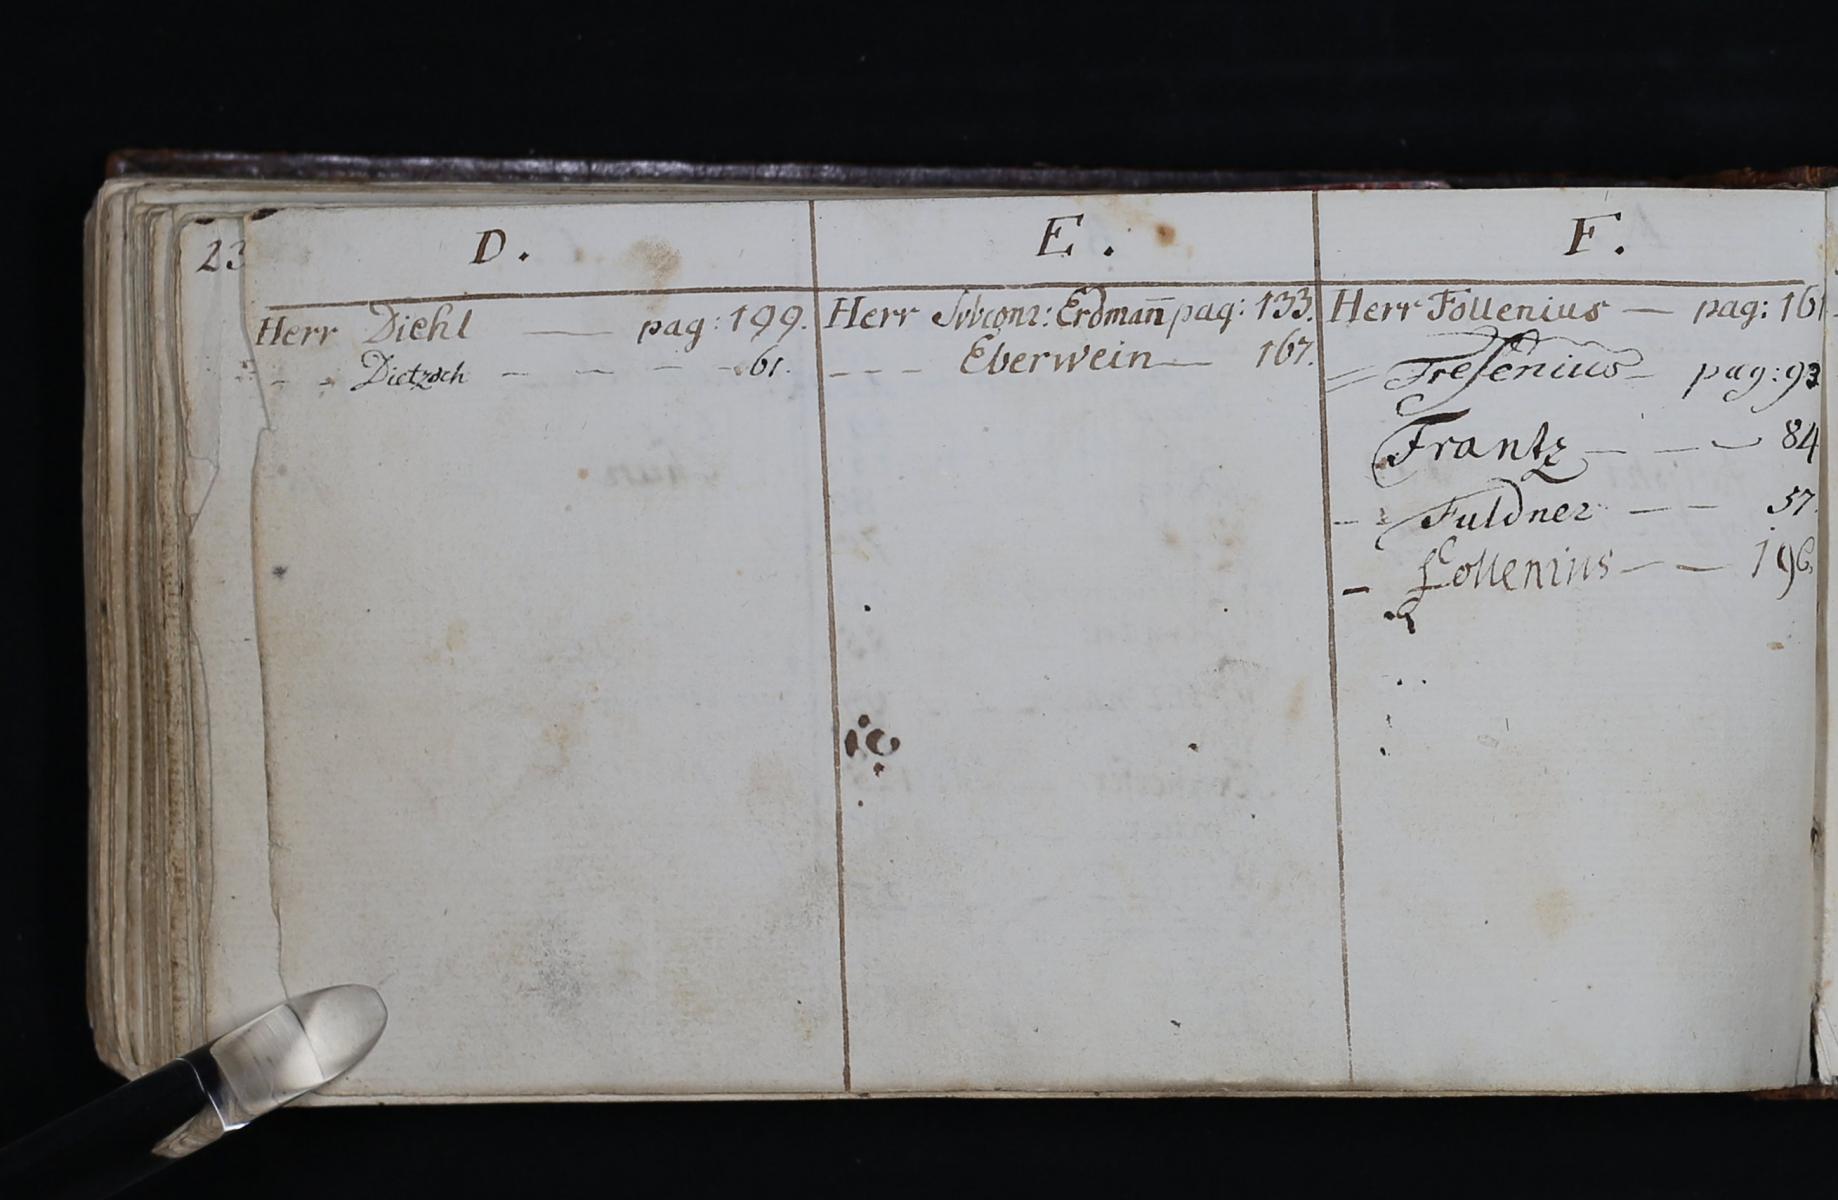 23
D.
Herr Diehl — pag: 199.
- - Dietzsch - - - - - 61.
E.
Herr Subconr: Erdman̄ pag: 133.
- - - Eberwein — 167.
F.
Herr Follenius — pag: 161
= Fresenius - pag: 93
Frantz - - - 84
- - Fuldner - - 57.
- Follenius - - 196